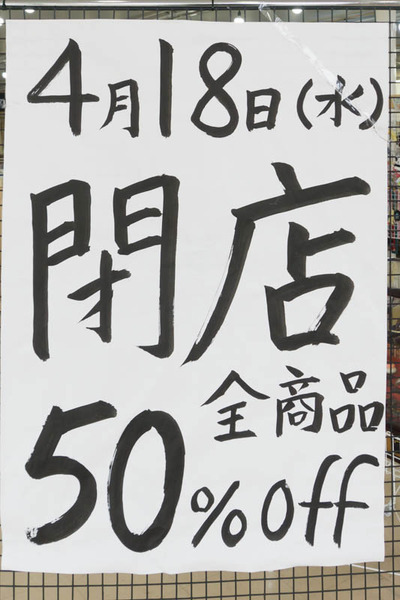 4月18日(水)
閉店
全商品
50%off